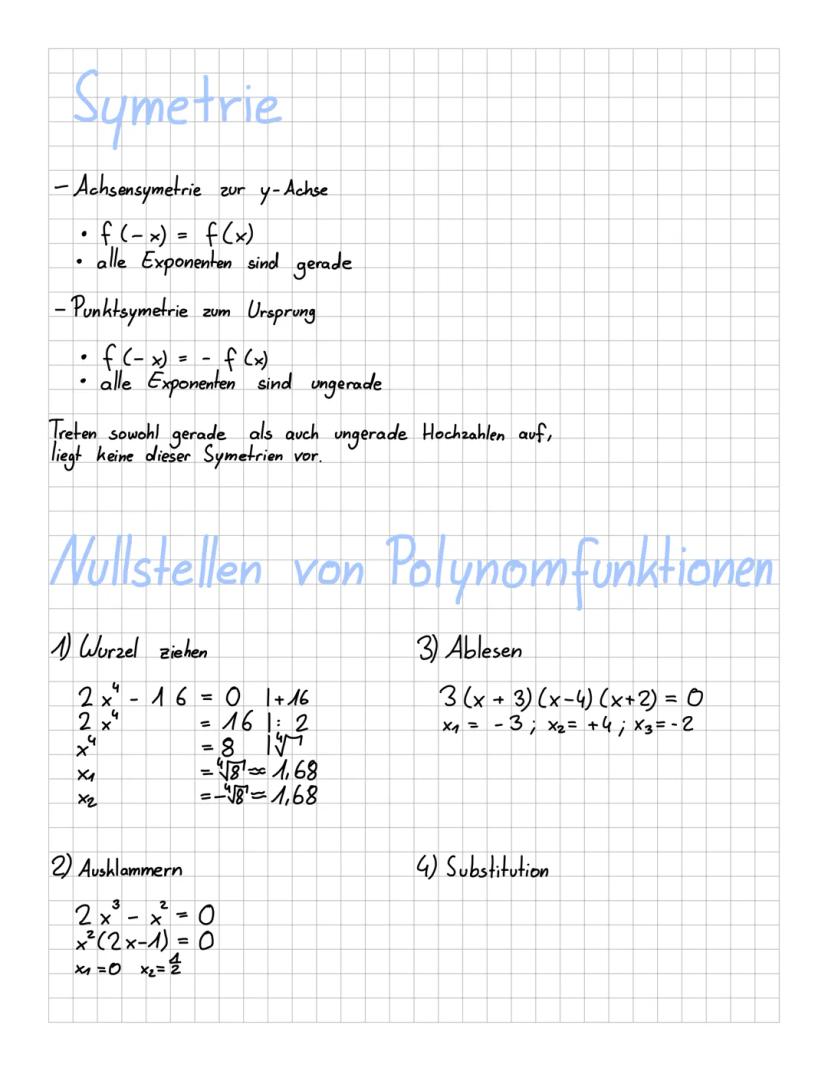 Symetrie
- Achsensymetrie zur y-Achse
• f(-x) = f(x)
• alle Exponenten sind gerade
- Punktsymetrie zum Ursprung
• f(-x) = - f(x)
• alle Exponenten sind ungerade
Treten sowohl gerade als auch ungerade Hochzahlen auf,
liegt keine dieser Symetrien vor.
Nullstellen von Polynomfunktionen
1) Wurzel ziehen
2x⁴ - 16 = 0 |+16
2x⁴ = 16 |: 2
x⁴ = 8 |⁴√
x₁ = ⁴√8 ≈ 1,68
x₂ = -⁴√8 = 1,68
2) Ausklammern
2x³ - x² = 0
x²(2x-1) = 0
x₁ = 0 x₂ = 1/2
3) Ablesen
3(x + 3)(x-4)(x+2) = 0
x₁ = -3; x₂ = +4; x₃ = -2
4) Substitution